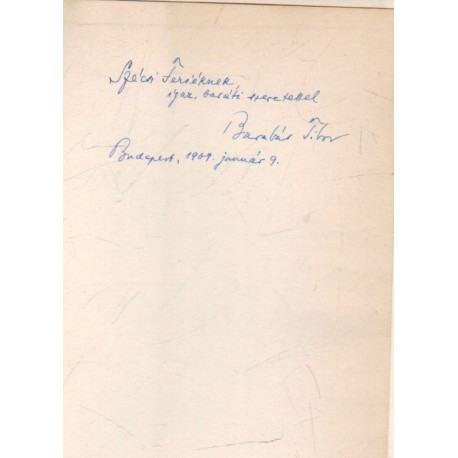 Szécsi Feriéknek
igaz, baráti szeretettel
Barabás Tibor
Budapest, 1961. január 9.